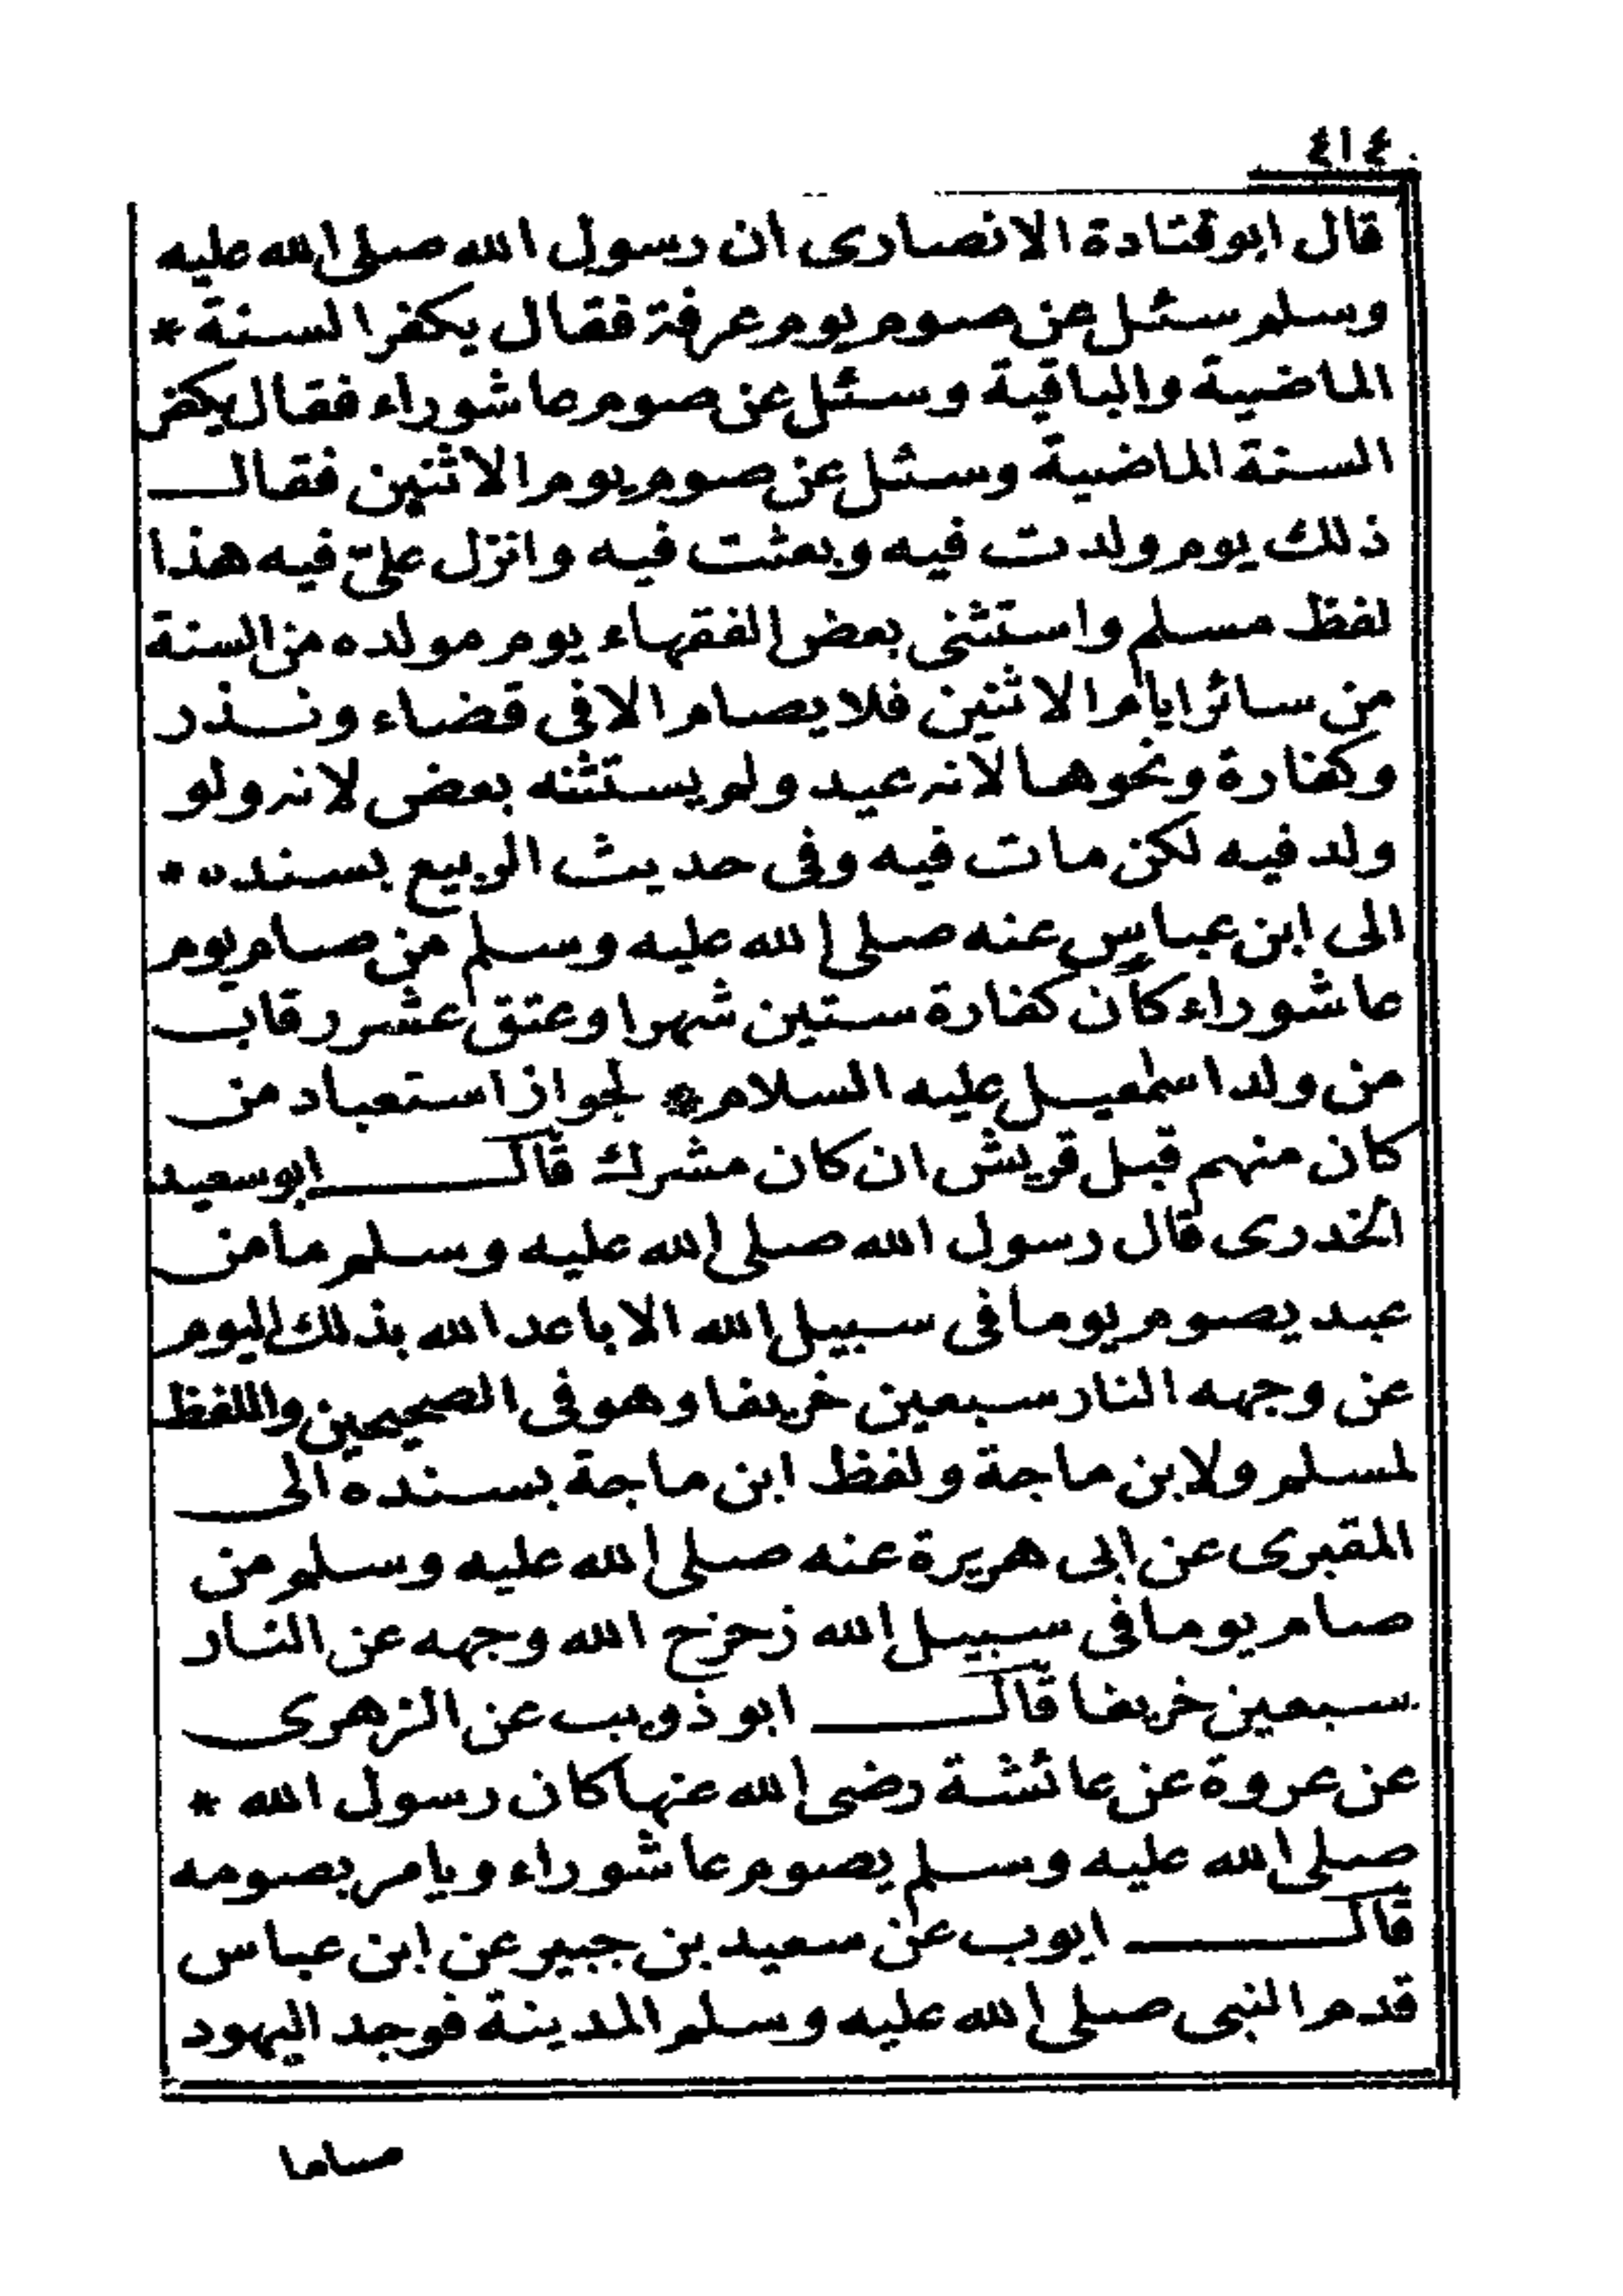 ٤١٤
قال ابو قتادة الانصارى ان رسول الله صلى الله عليه
وسلم سئل عن صوم يوم عرفة فقال يكفر السنة *
الماضية والباقية وسئل عن صوم عاشوراء فقال يكفر
السنة الماضية وسئل عن صوم يوم الاثنين فقال
ذلك يوم ولدت فيه وبعثت فيه وانزل علىّ فيه هذا
لفظ مسلم واستثنى بعض الفقهاء يوم مولده من السنة
من سائر ايام الاثنين فلا يصام الا فى قضاء ونذر
وكفارة ونحوها لانه عيد ولم يستثنه بعض لانه ولو
ولد فيه لكن مات فيه وفى حديث الربيع بسنده *
الى ابن عباس عنه صلى الله عليه وسلم من صام يوم
عاشوراء كان كفارة ستين شهرا وعتق عشر رقاب
من ولد اسمعيل عليه السلام * لجواز استعباد من
كان منهم قبل قريش ان كان مشرك قال ابو سعيد
الخدرى قال رسول الله صلى الله عليه وسلم ما من
عبد يصوم يوما فى سبيل الله الا باعد الله بذلك اليوم
عن وجهه النار سبعين خريفا وهو فى الصحيحين واللفظ
لمسلم ولابن ماجة ولفظ ابن ماجة بسنده الى
المقبرى عن ابى هريرة عنه صلى الله عليه وسلم من
صام يوما فى سبيل الله زحزح الله وجهه عن النار
سبعين خريفا قال ابو ذويب عن الزهرى
عن عروة عن عائشة رضى الله عنها كان رسول الله *
صلى الله عليه وسلم يصوم عاشوراء ويامر بصومه
قال ايوب عن سعيد بن جبير عن ابن عباس
قدم النبى صلى الله عليه وسلم المدينة فوجد اليهود
صاما